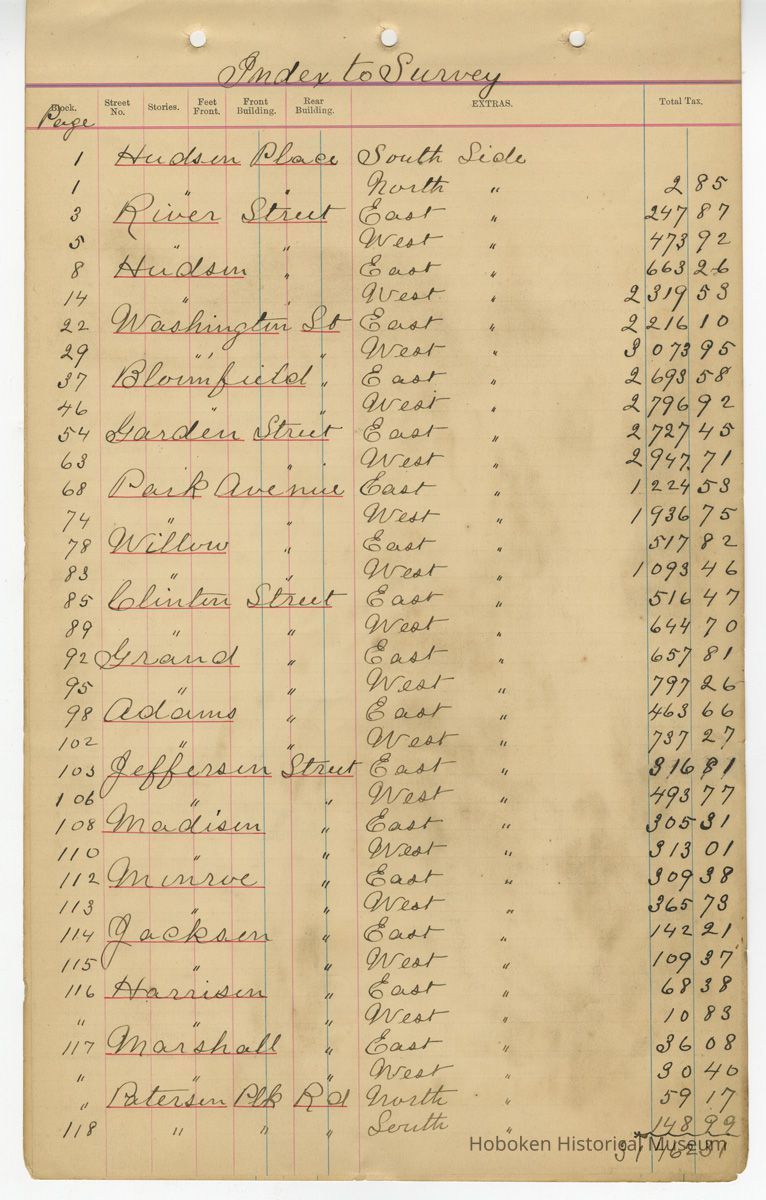 Index to Survey
Block. Street No. Stories. Feet Front. Front Building. Rear Building. EXTRAS. Total Tax.
Page
1 Hudson Place South Side
1 " " North " 2 85
3 River Street East " 247 87
5 " " West " 473 92
8 Hudson " East " 663 26
14 " " West " 2 319 53
22 Washington St East " 2 216 10
29 " " West " 3 073 95
37 Bloomfield " East " 2 693 58
46 " " West " 2 796 92
54 Garden Street East " 2 727 45
63 " " West " 2 947 71
68 Park Avenue East " 1 224 53
74 " " West " 1 936 75
78 Willow " East " 517 82
83 " " West " 1 093 46
85 Clinton Street East " 516 47
89 " " West " 644 70
92 Grand " East " 657 81
95 " " West " 797 26
98 Adams " East " 463 66
102 " " West " 737 27
103 Jefferson Street East " 316 81
106 " " West " 493 77
108 Madison " East " 305 31
110 " " West " 313 01
112 Monroe " East " 309 38
113 " " West " 365 73
114 Jackson " East " 142 21
115 " " West " 109 37
116 Harrison " East " 68 38
" " " West " 10 83
117 Marshall " East " 36 08
" " West " 30 40
" Paterson Plk Rd North " 59 17
118 " " " South " 148 99
Hoboken Historical Museum